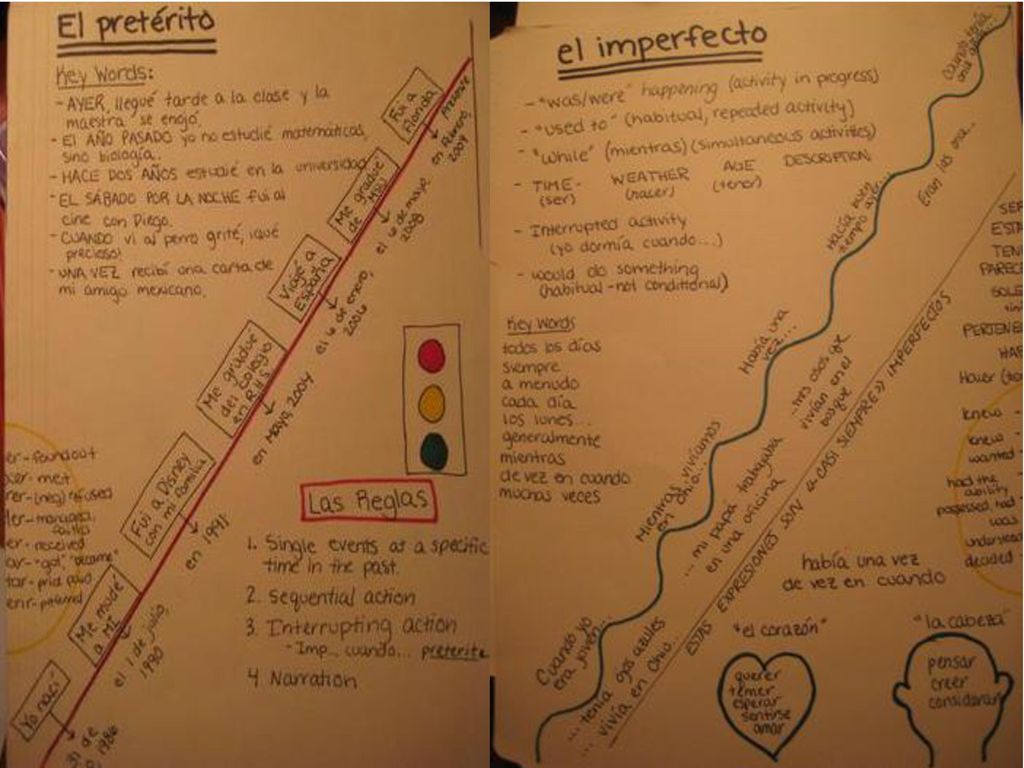 El pretérito
Key Words:
- AYER, llegué tarde a la clase y la
maestra se enojó.
- El AÑO PASADO yo no estudié matemáticas,
sino biología.
- HACE DOS AÑOS estudié en la universidad
- EL SÁBADO POR LA NOCHE fui al
cine con Diego.
- CUANDO vi al perro grité, ¡qué
precioso!
- UNA VEZ recibí una carta de
mi amigo mexicano.
Fui a
Florida
en febrero,
2009
Me gradué
de
el 6 de mayo,
2008
Viajé a
España
el 6 de enero,
2006
Me gradué
del colegio
en RHS
en Mayo, 2004
Fui a Disney
con mi familia
en 1991
Me mudé
a MI
el 1 de julio,
1990
Yo nací
31 de
1986
er- found out
cer- met
rer-(neg) refused
er- received
ar- "got," "became"
Las Reglas
1. Single events at a specific
time in the past.
2. Sequential action
3. Interrupting action
- Imp... cuando... preterite
4. Narration
el imperfecto
- "was/were" happening (activity in progress)
- "used to" (habitual, repeated activity)
- "while" (mientras) (simultaneous activities)
- TIME- WEATHER AGE DESCRIPTION
(ser) (hacer) (tener)
- Interrupted activity
(yo dormía cuando...)
- would do something
(habitual - not conditional)
Key Words
todos los días
siempre
a menudo
cada día
los lunes...
generalmente
mientras
de vez en cuando
muchas veces
Cuando tenía
Eran las once...
Hacía buen
tiempo ayer...
Había una
vez...
...tres osos que
vivían en el
bosque
Mientras vivíamos
en Ohio...
... mi papá trabajaba
en una oficina
Cuando yo
era joven...
... tenía ojos azules
... vivía en Ohio...
ESTAS EXPRESIONES SON «CASI SIEMPRE» IMPERFECTOS
SER
ESTA
TENE
PARECE
SOLE
PERTENE
HAB
knew -
knew -
wanted -
had the
ability
possessed, had
was
decided -
había una vez
de vez en cuando
"el corazón"
querer
temer
esperar
sentirse
amar
"la cabeza"
pensar
creer
considerar